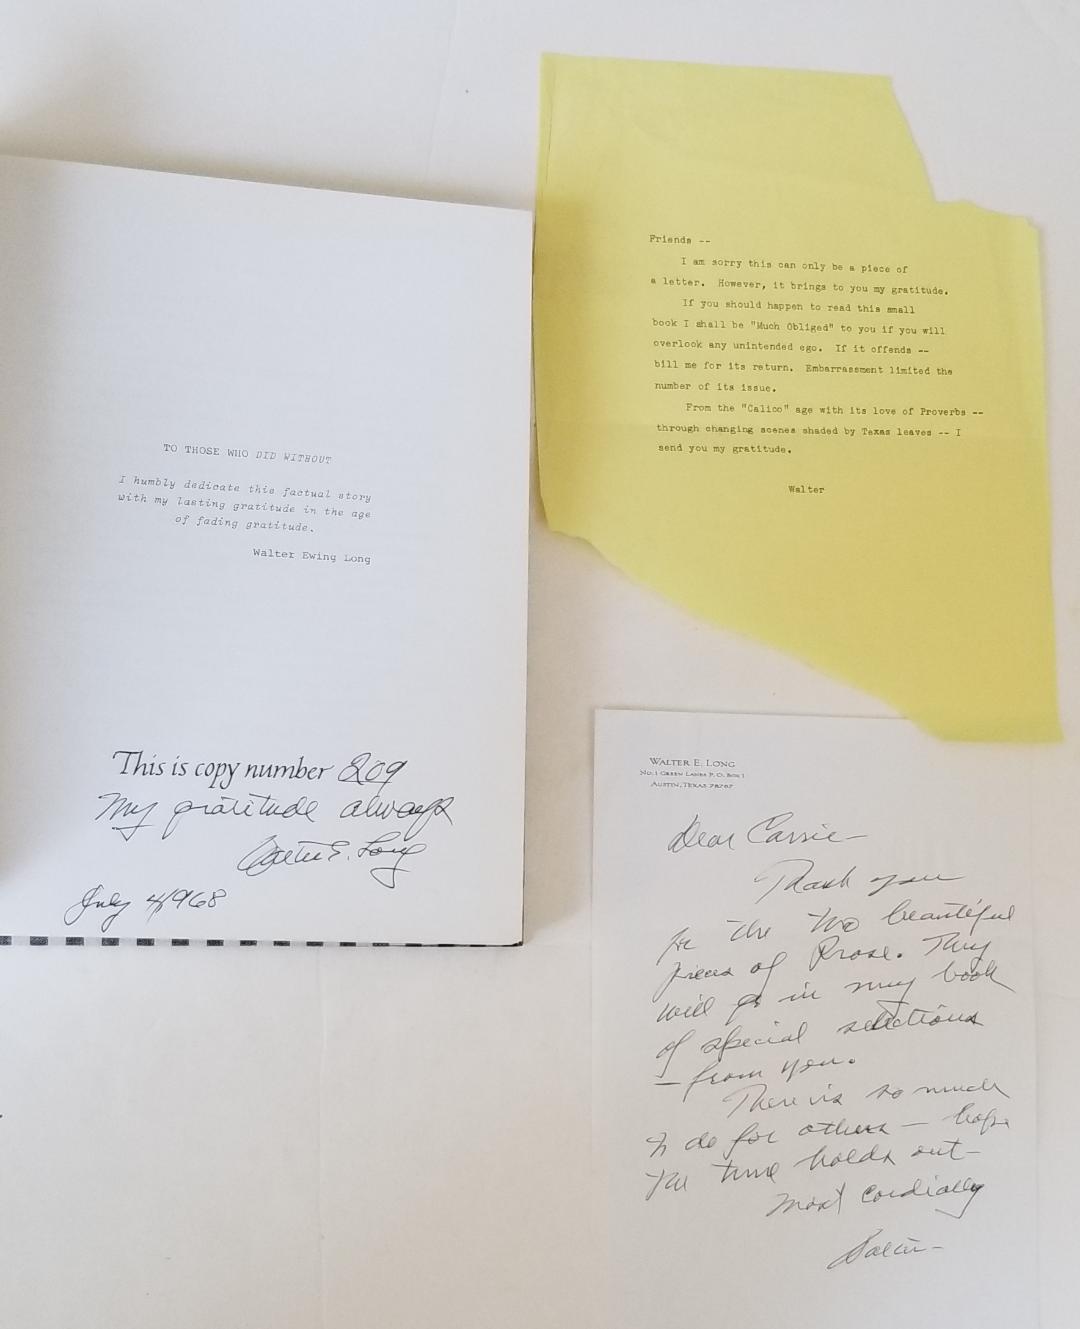 TO THOSE WHO DID WITHOUT
I humbly dedicate this factual story
with my lasting gratitude in the age
of fading gratitude.
Walter Ewing Long
This is copy number 209
My gratitude always
Walter E. Long
July 4/1968
Friends --
I am sorry this can only be a piece of
a letter. However, it brings to you my gratitude.
If you should happen to read this small
book I shall be "Much Obliged" to you if you will
overlook any unintended ego. If it offends --
bill me for its return. Embarrassment limited the
number of its issue.
From the "Calico" age with its love of Proverbs --
through changing scenes shaded by Texas leaves -- I
send you my gratitude.
Walter
WALTER E. LONG
NO. 1 GREEN LANES P. O. BOX 1
AUSTIN, TEXAS 78767
Dear Carrie -
Thank you
for the two beautiful
pieces of Prose. They
will go in my book
of special selections
- from you.
There is so much
to do for others - hope
the time holds out -
Most cordially
Walter -